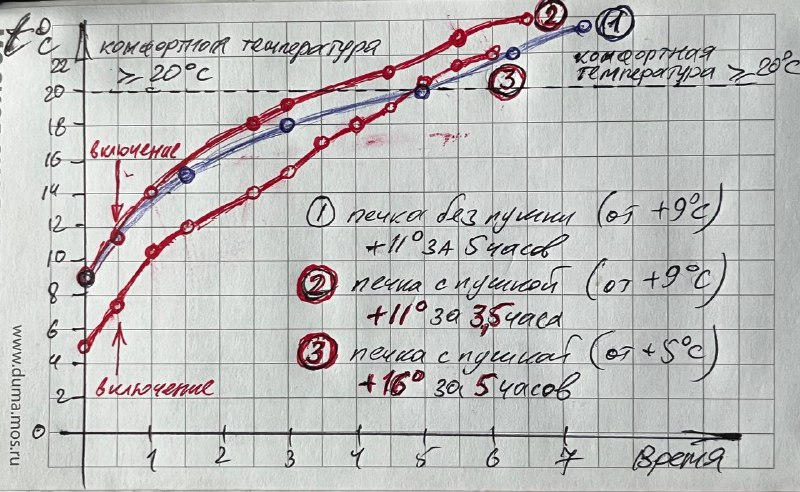 t°c
② ①
комфортная температура
≥ 20°c
комфортная
температура ≥ 20°c
③
22
20
18
16
14
12
10
8
6
4
2
0
включение
① печка без пушки (от +9°c)
+11° за 5 часов
② печка с пушкой (от +9°c)
+11° за 3,5 часа
③ печка с пушкой (от +5°c)
+16° за 5 часов
включение
1 2 3 4 5 6 7 Время
www.duma.mos.ru